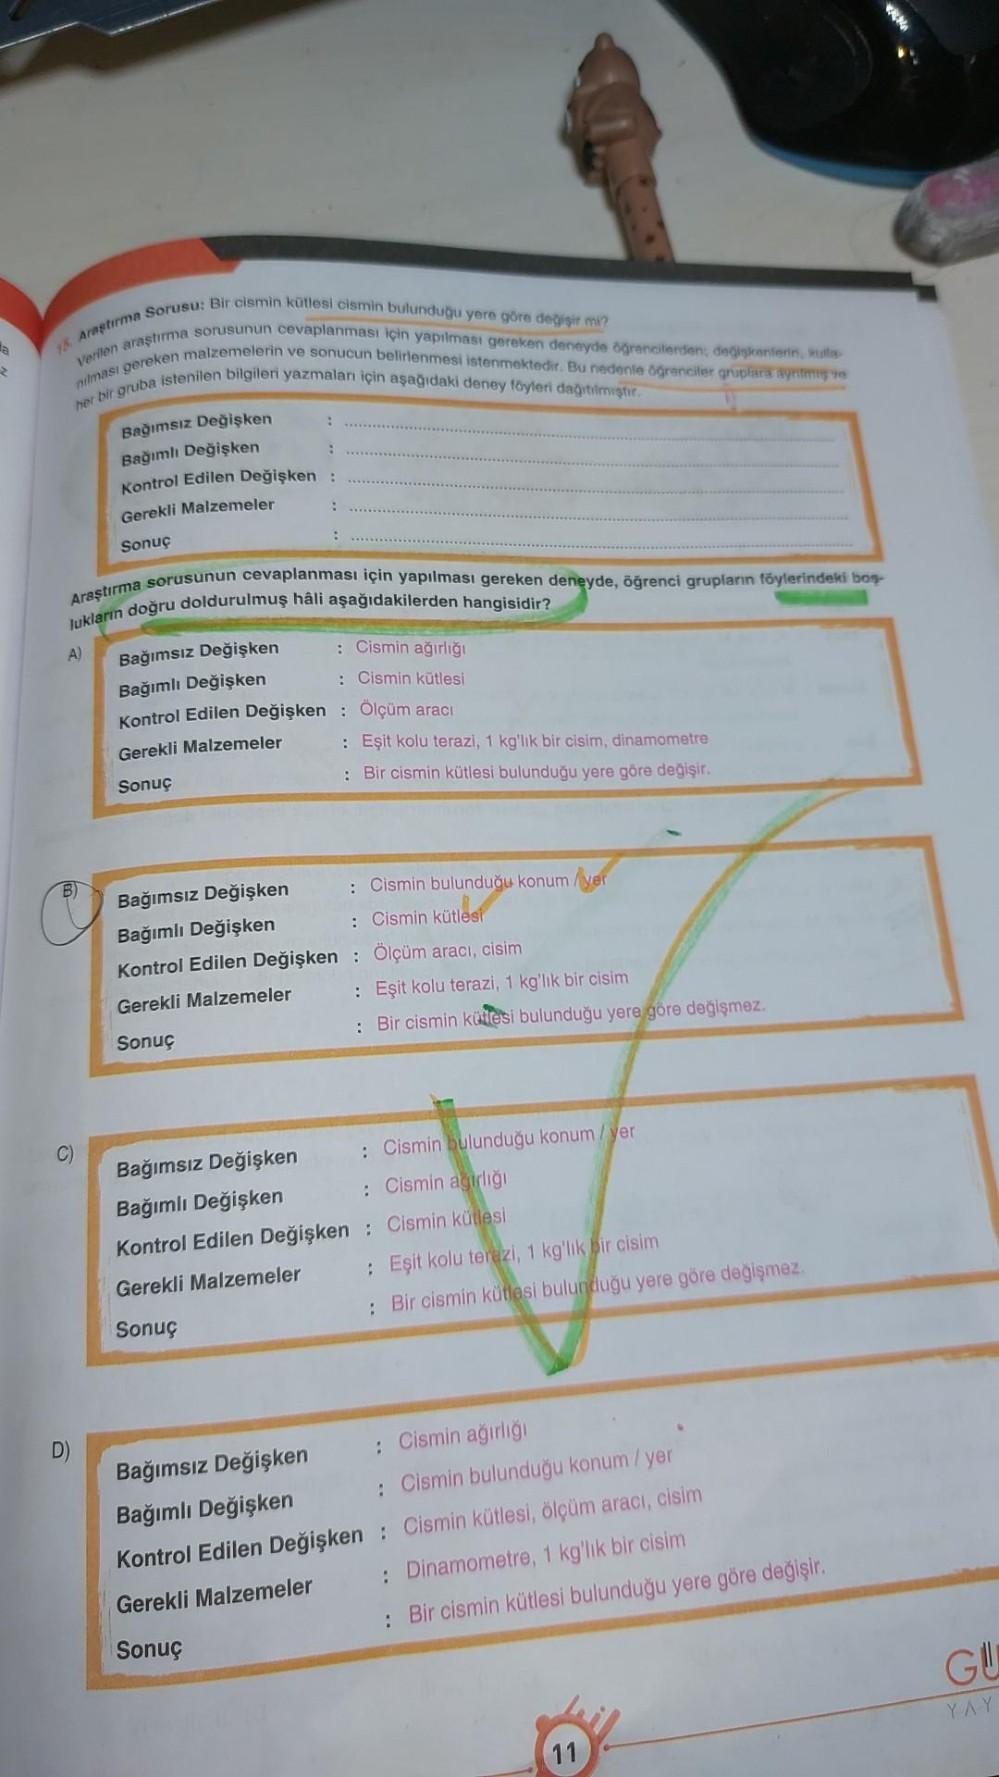 15. Araştırma Sorusu: Bir cismin kütlesi cismin bulunduğu yere göre değişir mi?
Verilen araştırma sorusunun cevaplanması için yapılması gereken deneyde öğrencilerden; değişkenlerin, kulla-
nılması gereken malzemelerin ve sonucun belirlenmesi istenmektedir. Bu nedenle öğrenciler gruplara ayrılmış ve
her bir gruba istenilen bilgileri yazmaları için aşağıdaki deney föyleri dağıtılmıştır.
Bağımsız Değişken :
Bağımlı Değişken :
Kontrol Edilen Değişken :
Gerekli Malzemeler :
Sonuç :
Araştırma sorusunun cevaplanması için yapılması gereken deneyde, öğrenci grupların föylerindeki boş-
lukların doğru doldurulmuş hâli aşağıdakilerden hangisidir?
A)
Bağımsız Değişken : Cismin ağırlığı
Bağımlı Değişken : Cismin kütlesi
Kontrol Edilen Değişken : Ölçüm aracı
Gerekli Malzemeler : Eşit kolu terazi, 1 kg'lık bir cisim, dinamometre
Sonuç : Bir cismin kütlesi bulunduğu yere göre değişir.
B)
Bağımsız Değişken : Cismin bulunduğu konum / yer
Bağımlı Değişken : Cismin kütlesi
Kontrol Edilen Değişken : Ölçüm aracı, cisim
Gerekli Malzemeler : Eşit kolu terazi, 1 kg'lık bir cisim
Sonuç : Bir cismin kütlesi bulunduğu yere göre değişmez.
C)
Bağımsız Değişken : Cismin bulunduğu konum / yer
Bağımlı Değişken : Cismin ağırlığı
Kontrol Edilen Değişken : Cismin kütlesi
Gerekli Malzemeler : Eşit kolu terazi, 1 kg'lık bir cisim
Sonuç : Bir cismin kütlesi bulunduğu yere göre değişmez.
D)
Bağımsız Değişken : Cismin ağırlığı
Bağımlı Değişken : Cismin bulunduğu konum / yer
Kontrol Edilen Değişken : Cismin kütlesi, ölçüm aracı, cisim
Gerekli Malzemeler : Dinamometre, 1 kg'lık bir cisim
Sonuç : Bir cismin kütlesi bulunduğu yere göre değişir.
11